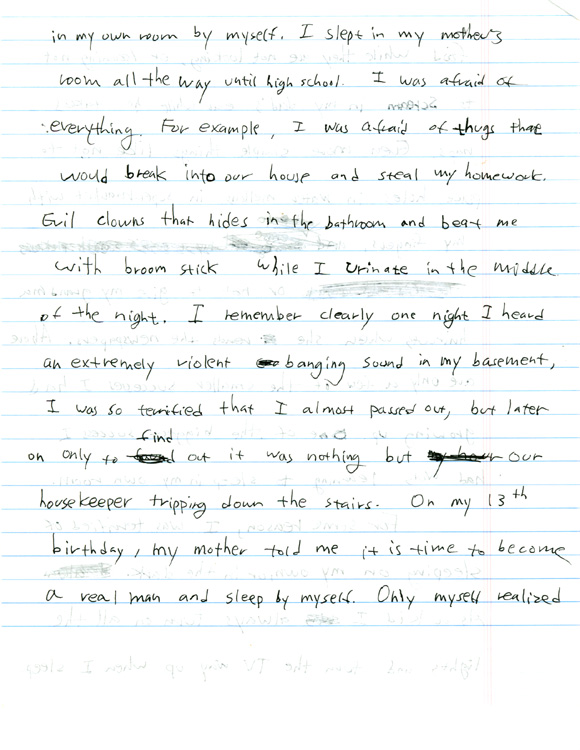 in my own room by myself. I slept in my mother's
room all the way until high school. I was afraid of
everything. For example, I was afraid of thugs that
would break into our house and steal my homework.
Evil clowns that hides in the bathroom and beat me
with broom stick while I urinate in the middle
of the night. I remember clearly one night I heard
an extremely violent banging sound in my basement,
I was so terrified that I almost passed out, but later
find
on only to out it was nothing but our
housekeeper tripping down the stairs. On my 13th
birthday, my mother told me it is time to become
a real man and sleep by myself. Only myself realized